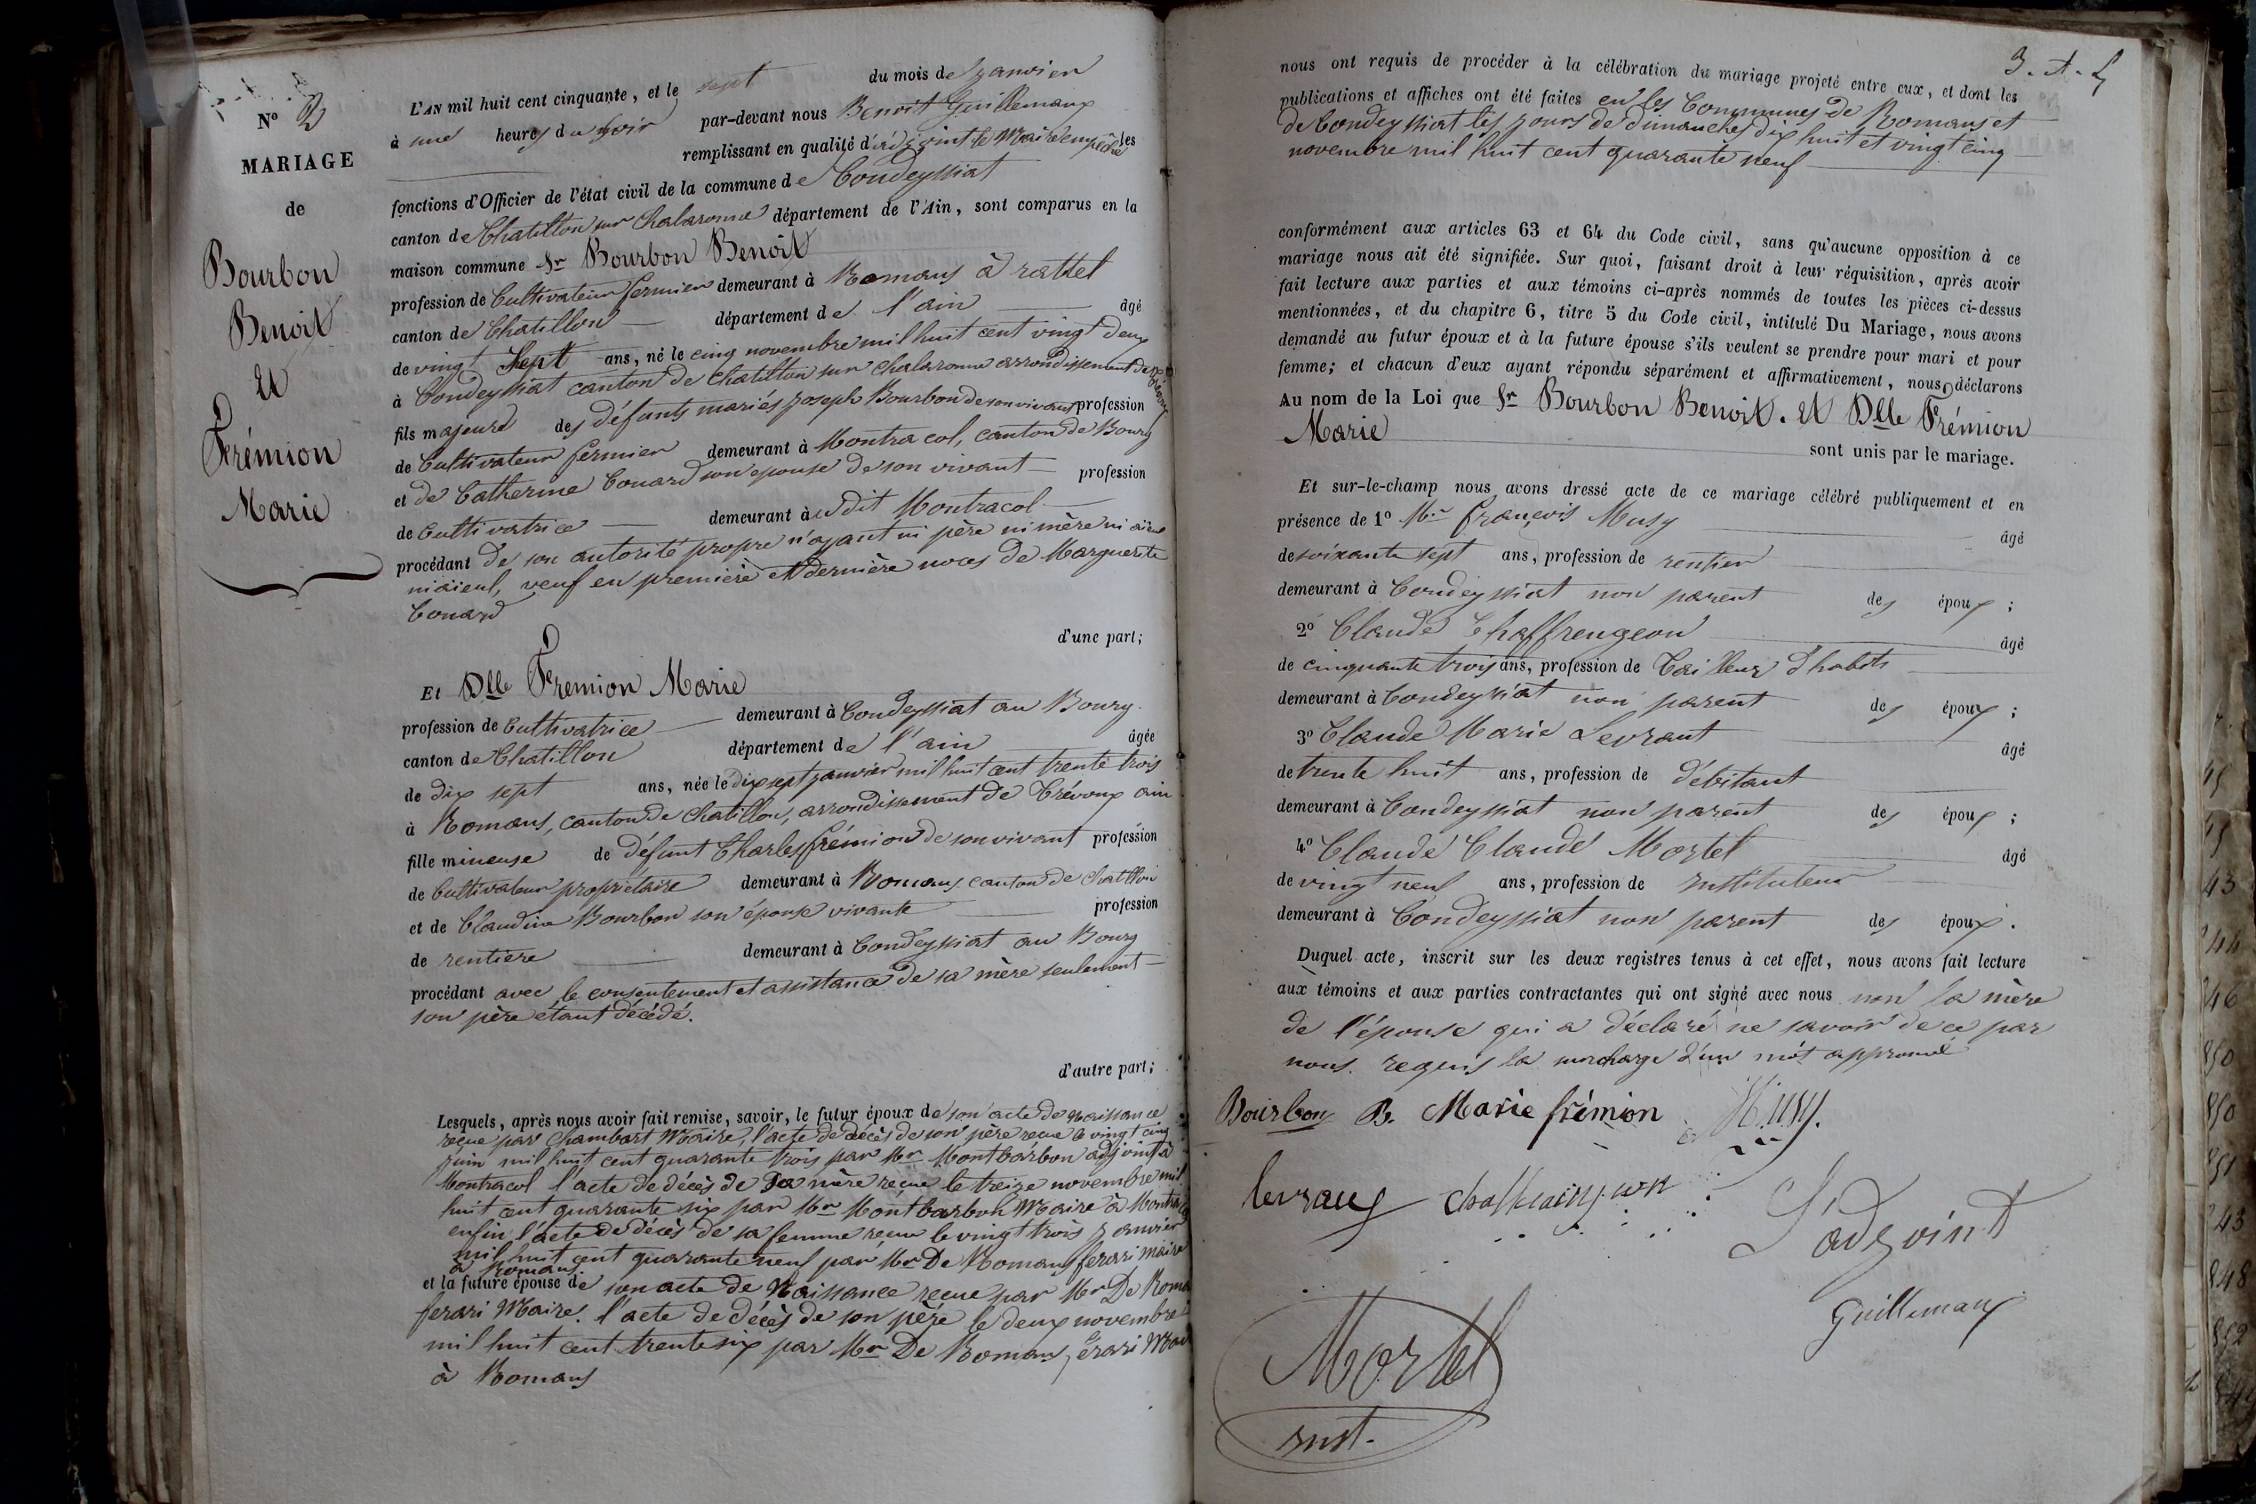 N° 2
MARIAGE
de
Bourbon
Benoit
et
Frémion
Marie
L'AN mil huit cent cinquante, et le sept du mois de janvier
à une heures du soir par-devant nous Benoit Guillemaux
remplissant en qualité d'adjoint le Maire empêché les
fonctions d'Officier de l'état civil de la commune de Condeyssiat
canton de Chatillon sur Chalaronne département de l'Ain, sont comparus en la
maison commune Sr Bourbon Benoit
profession de Cultivateur fermier demeurant à Romans à rattel
canton de Chatillon département de l'ain âgé
de vingt sept ans, né le cinq novembre mil huit cent vingt deux
à Condeyssiat canton de Chatillon sur Chalaronne arrondissement de Trévoux
fils majeur des défunts mariés joseph Bourbon de son vivant profession
de Cultivateur fermier demeurant à Montracol, canton de Bourg
et de Catherine Couard son épouse de son vivant profession
de Cultivatrice demeurant à udit Montracol
procédant de son autorité propre n'ayant ni père ni mère ni aïeul
ni aïeul, veuf en première et dernière noces de Marguerite
Couard
d'une part;
Et Dlle Fremion Marie
profession de Cultivatrice demeurant à Condeyssiat au Bourg
canton de Chatillon département de l'ain âgée
de dix sept ans, née le dix sept janvier mil huit cent trente trois
à Romans, canton de Chatillon, arrondissement de Trévoux ain
fille mineuse de défunt Charles frémion de son vivant profession
de Cultivateur propriétaire demeurant à Romans canton de Chatillon
et de Claudine Bourbon son épouse vivante profession
de rentière demeurant à Condeyssiat au Bourg
procédant avec le consentement et assistance de sa mère seulement
son père étant décédé.
d'autre part;
Lesquels, après nous avoir fait remise, savoir, le futur époux de son acte de naissance
reçue par Chambart Maire, l'acte de décès de son père reçue le vingt cinq
juin mil huit cent quarante trois par Mr Montbarbon adjoint à
Montracol l'acte de décès de sa mère reçue le treize novembre mil
huit cent quarante six par Mr Montbarbon Maire à
enfin l'acte de décès de sa femme reçue le vingt trois janvier
mil huit cent quarante neuf par Mr De Romans ferari maire
à Romans
et la future épouse de son acte de Naissance reçue par Mr De
ferari Maire. l'acte de décès de son père le deux novembre
mil huit cent trente six par Mr De Romans férari
à Romans
3. A. L
nous ont requis de procéder à la célébration du mariage projeté entre eux, et dont les
publications et affiches ont été faites en les Communes de Romans et
de Condeyssiat les jours de dimanches dix huit et vingt cinq
novembre mil huit cent quarante neuf
conformément aux articles 63 et 64 du Code civil, sans qu'aucune opposition à ce
mariage nous ait été signifiée. Sur quoi, faisant droit à leur réquisition, après avoir
fait lecture aux parties et aux témoins ci-après nommés de toutes les pièces ci-dessus
mentionnées, et du chapitre 6, titre 5 du Code civil, intitulé Du Mariage, nous avons
demandé au futur époux et à la future épouse s'ils veulent se prendre pour mari et pour
femme; et chacun d'eux ayant répondu séparément et affirmativement, nous déclarons
Au nom de la Loi que Sr Bourbon Benoit. Et Dlle Frémion
Marie
sont unis par le mariage.
Et sur-le-champ nous avons dressé acte de ce mariage célébré publiquement et en
présence de 1° Mr françois Musy âgé
de soixante sept ans, profession de rentier
demeurant à Condeyssiat non parent des époux;
2° Claude Chaffrengeon âgé
de cinquante trois ans, profession de Tailleur d'habits
demeurant à Condeyssiat non parent des époux;
3° Claude Marie Levrant âgé
de trente huit ans, profession de débitant
demeurant à Condeyssiat non parent des époux;
4° Claude Claudé Mortel âgé
de vingt neuf ans, profession de instituteur
demeurant à Condeyssiat non parent des époux.
Duquel acte, inscrit sur les deux registres tenus à cet effet, nous avons fait lecture
aux témoins et aux parties contractantes qui ont signé avec nous non la mère
de l'épouse qui a déclaré ne savoir de ce par
nous requis la surcharge d'un mot approuvé
Bourbon B. Marie frémion Musy
levraux
L'adjoint
Guillemaux
Mortel
inst.